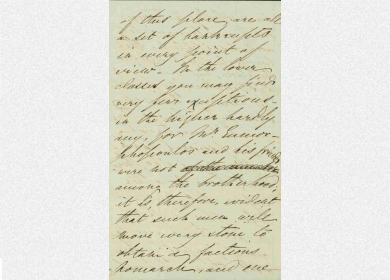 of this place, are all
a set of bankrupts
in every point of
view. In the lower
classes you may find
very few exceptions -
in the higher hardly
any, for Mr. Eumor-
phopoulos and his friends
were not
among the brotherhood,
it is, therefore, evident
that such men will
move every stone to
obtain a factious
and one